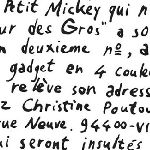 Petit Mickey qui n
ur des Gros" a so
n deuxième nº, a
gadget en 4 coule
relève son adress
z Christine Poutou
ue Neuve. 94400-Vi
ui seront insultés